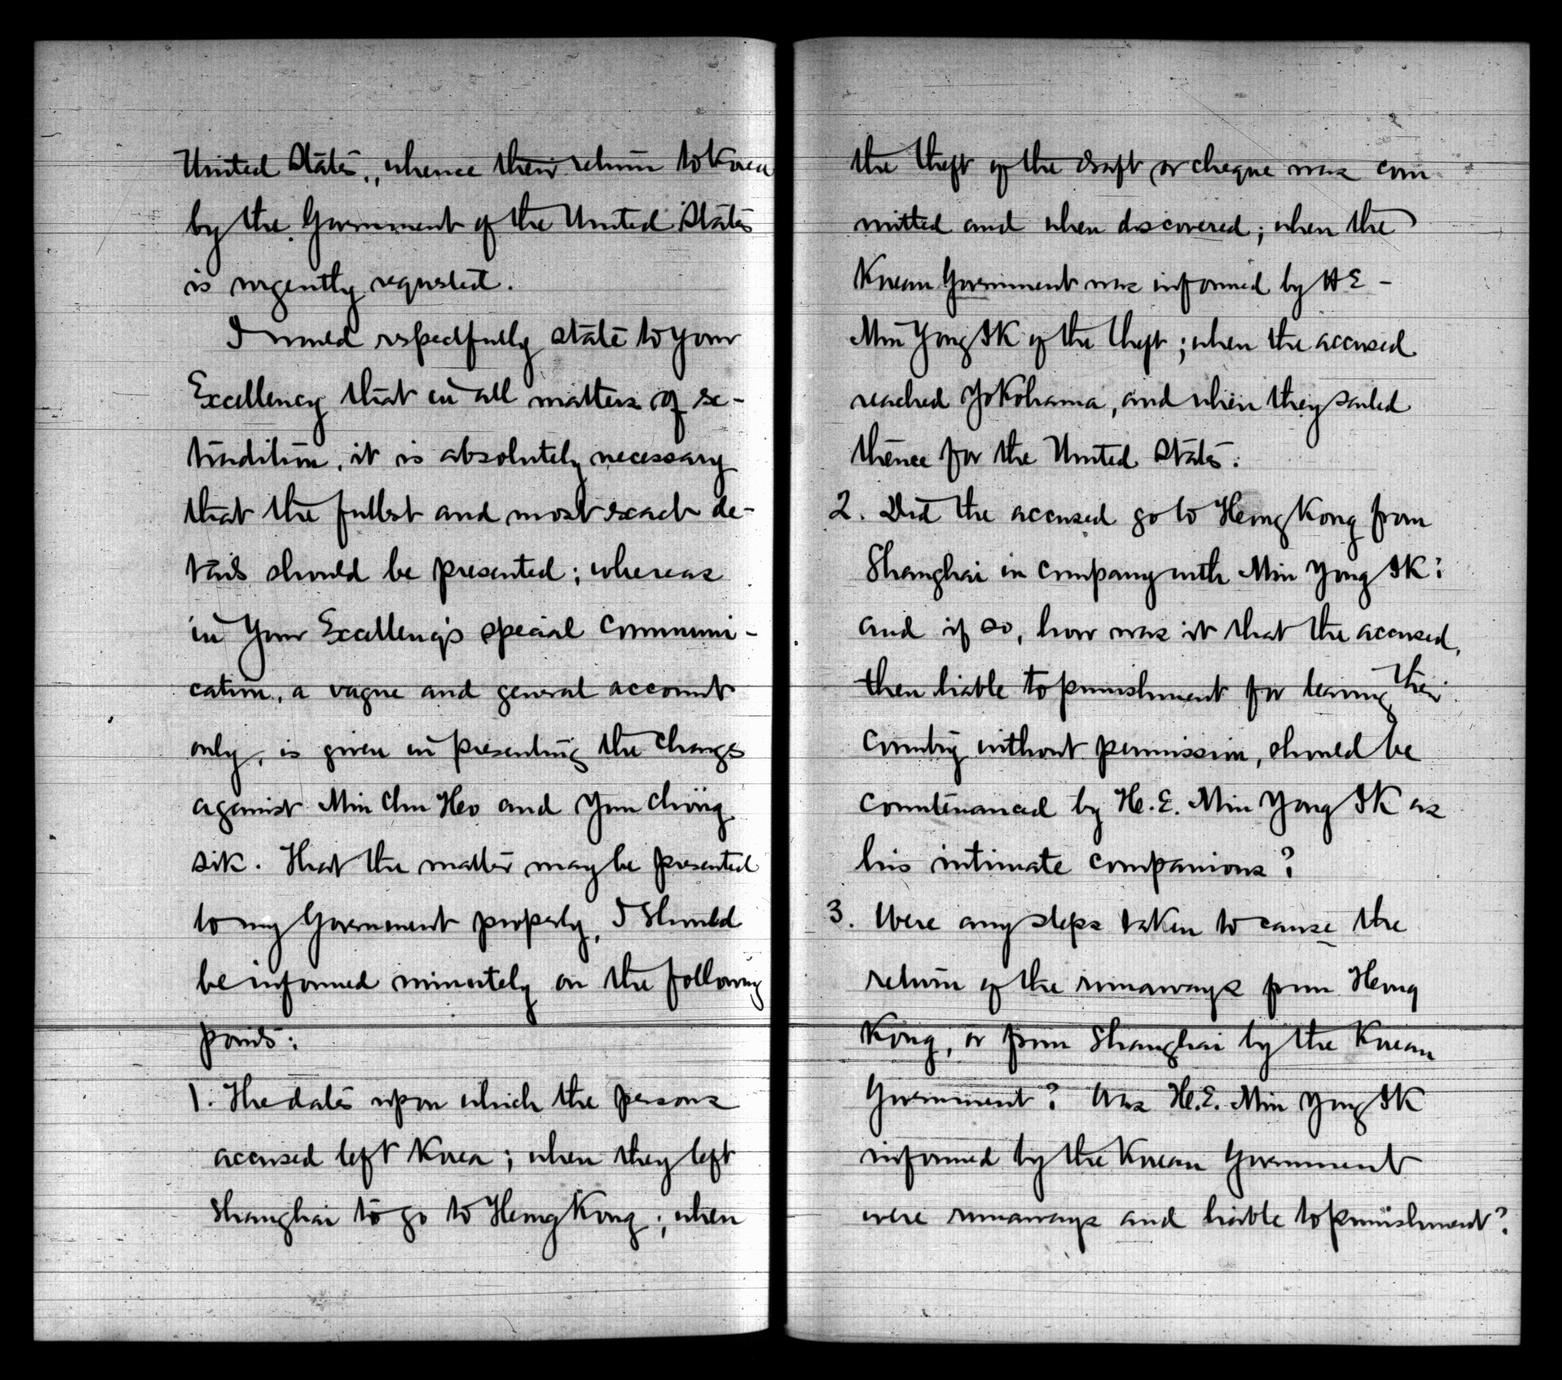 United States, whence their return to Korea
by the Government of the United States
is urgently requested.
I would respectfully state to Your
Excellency that in all matters of ex-
tradition, it is absolutely necessary
that the fullest and most exact de-
tails should be presented; whereas
in Your Excellency's special communi-
cation, a vague and general account
only, is given in presenting the charges
against Min Chu Ho and Yun Chöng
sik. That the matter may be presented
to my Government properly, I should
be informed minutely on the following
points:
1. The dates upon which the persons
accused left Korea; when they left
Shanghai to go to Hong Kong; when
the theft of the draft or cheque was com
mitted and when discovered; when the
Korean Government was informed by HE -
Min Yong IK of the theft; when the accused
reached Yokohama, and when they sailed
thence for the United States.
2. Did the accused go to Hong Kong from
Shanghai in company with Min Yong IK?
and if so, how was it that the accused,
then liable to punishment for leaving their
country without permission, should be
countenanced by H.E. Min Yong IK as
his intimate companions?
3. Were any steps taken to cause the
return of the runaways from Hong
Kong, or from Shanghai by the Korean
Government? Was H.E. Min Yong IK
informed by the Korean Government
were runaways and liable to punishment?